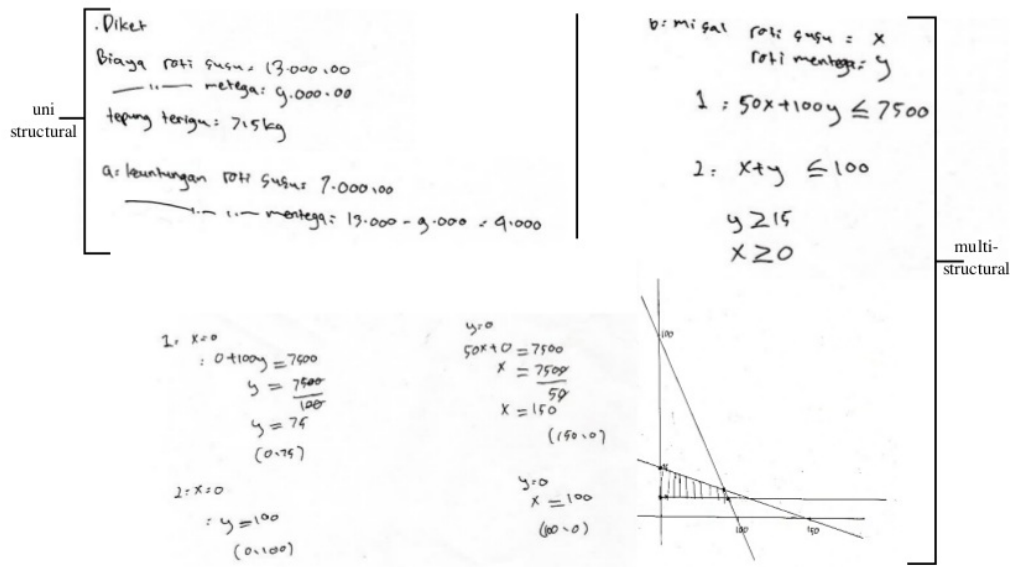 uni
structural
. Diket
Biaya roti susu = 13.000,00
—— " —— metega: 9.000,00
tepung terigu: 7,5 kg
a: keuntungan roti susu: 7.000,00
—— " —— mentega: 13.000 - 9.000 = 4.000
b: misal roti susu = x
roti mentega: y
1: 50x + 100y ≤ 7500
2: x+y ≤ 100
y ≥ 15
x ≥ 0
multi-
structural
1: x=0
: 0+100y = 7500
y = 7500/100
y = 75
(0,75)
y=0
50x+0 = 7500
x = 7500/50
x = 150
(150,0)
2: x=0
: y = 100
(0,100)
y=0
x = 100
(100,0)
100
100
150